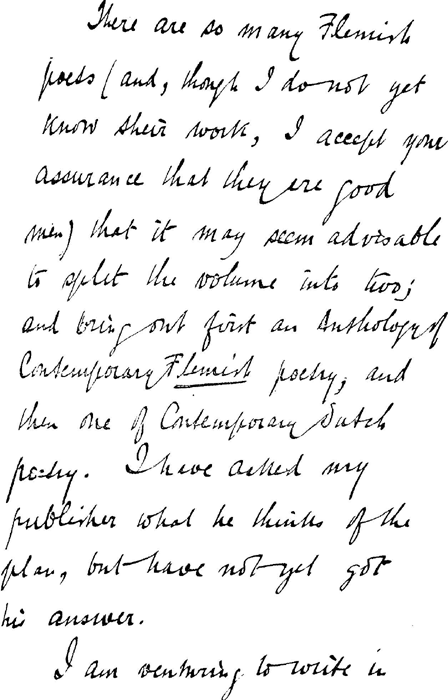 There are so many Flemish
poets (and, though I do not yet
know their work, I accept your
assurance that they are good
men) that it may seem advisable
to split the volume into two;
and bring out first an Anthology of
Contemporary Flemish poetry, and
then one of Contemporary Dutch
poetry. I have asked my
publisher what he thinks of the
plan, but have not yet got
his answer.
I am venturing to write in